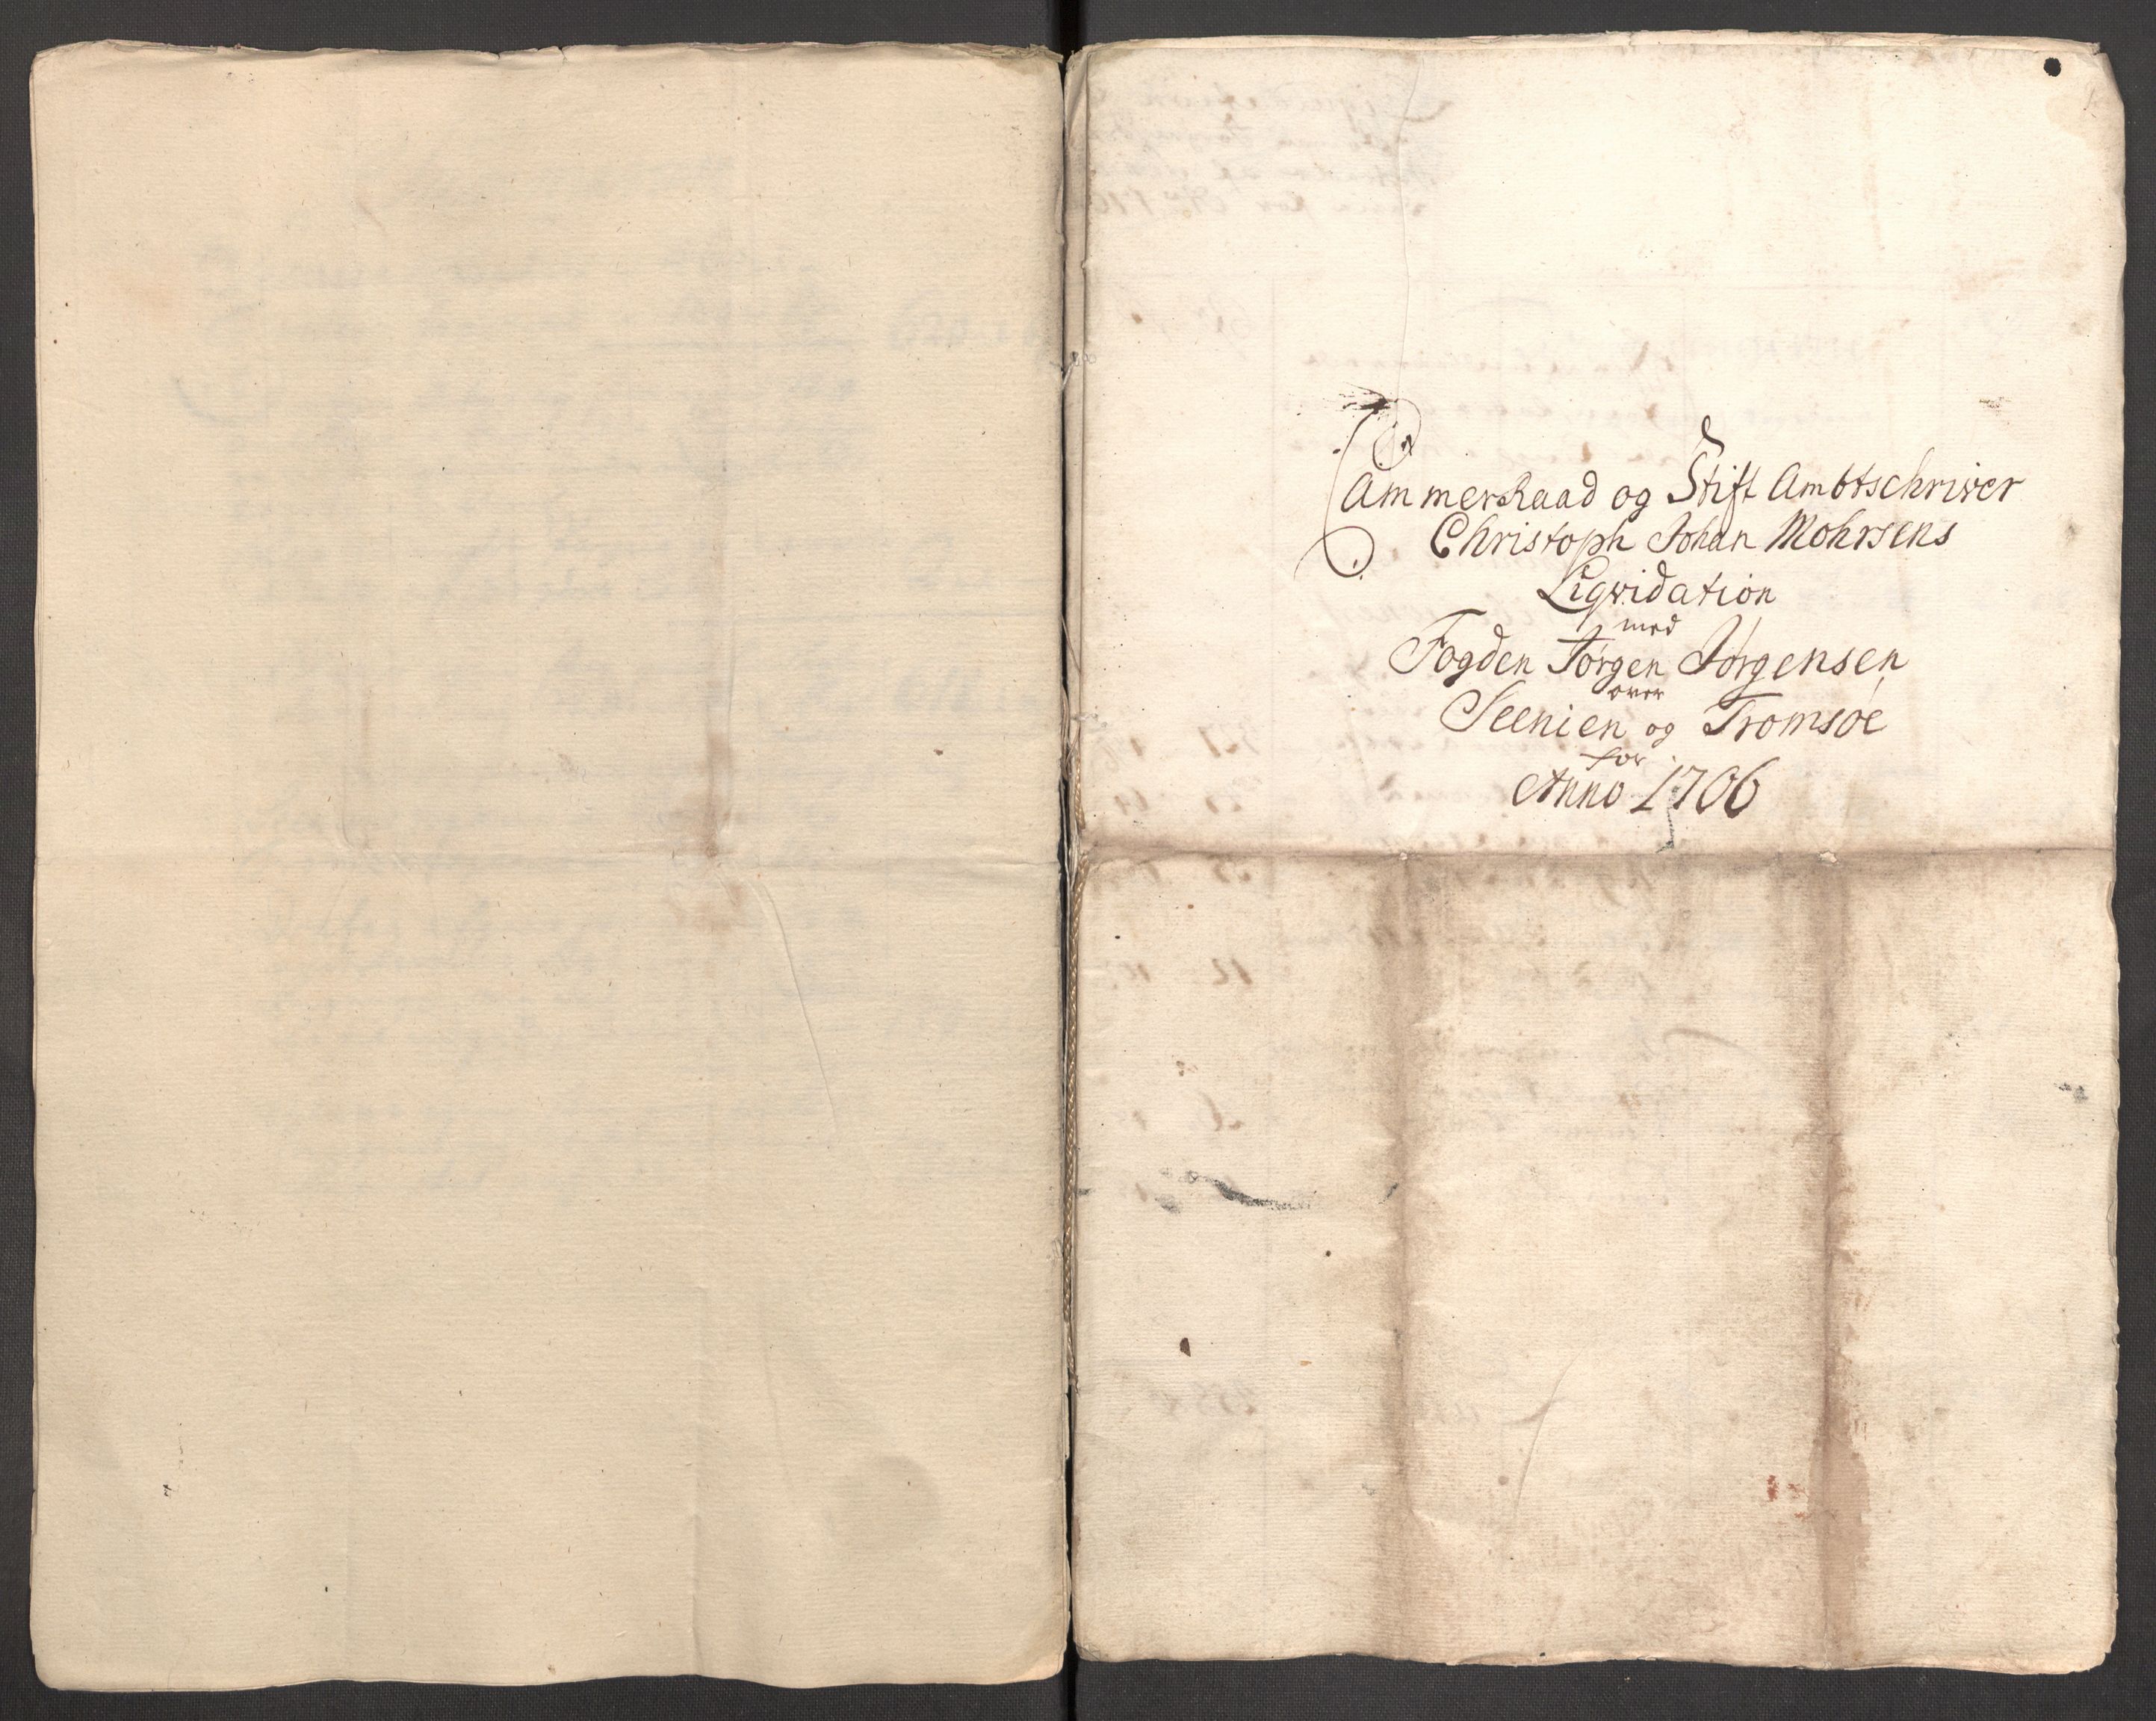 CammerRaad og Stift Ambtschriver
Christoph Johan Mohrsens
Liqvidation
med
Fogden Jörgen Jörgensen
over
Seenien og Tromsöe
for
Anno 1706